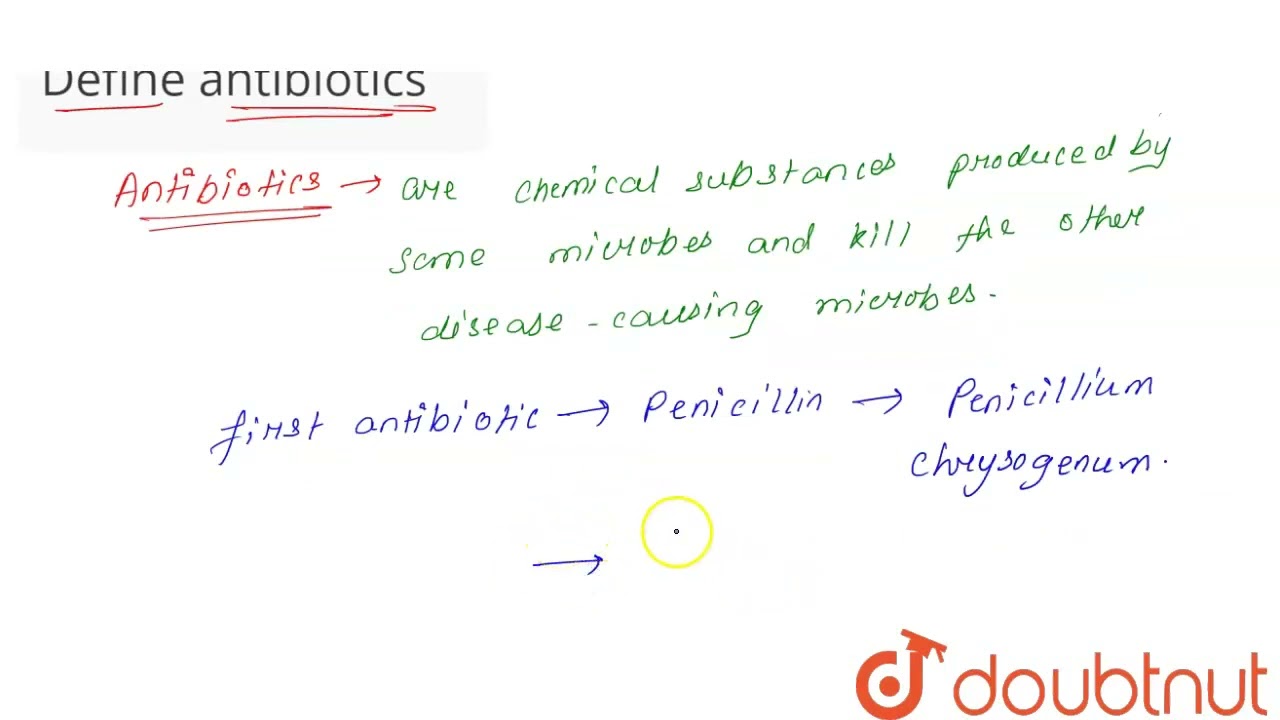 Define antibiotics
Antibiotics → are chemical substances produced by
some microbes and kill the other
disease-causing microbes.
first antibiotic → Penicillin → Penicillium
chrysogenum.
→
doubtnut